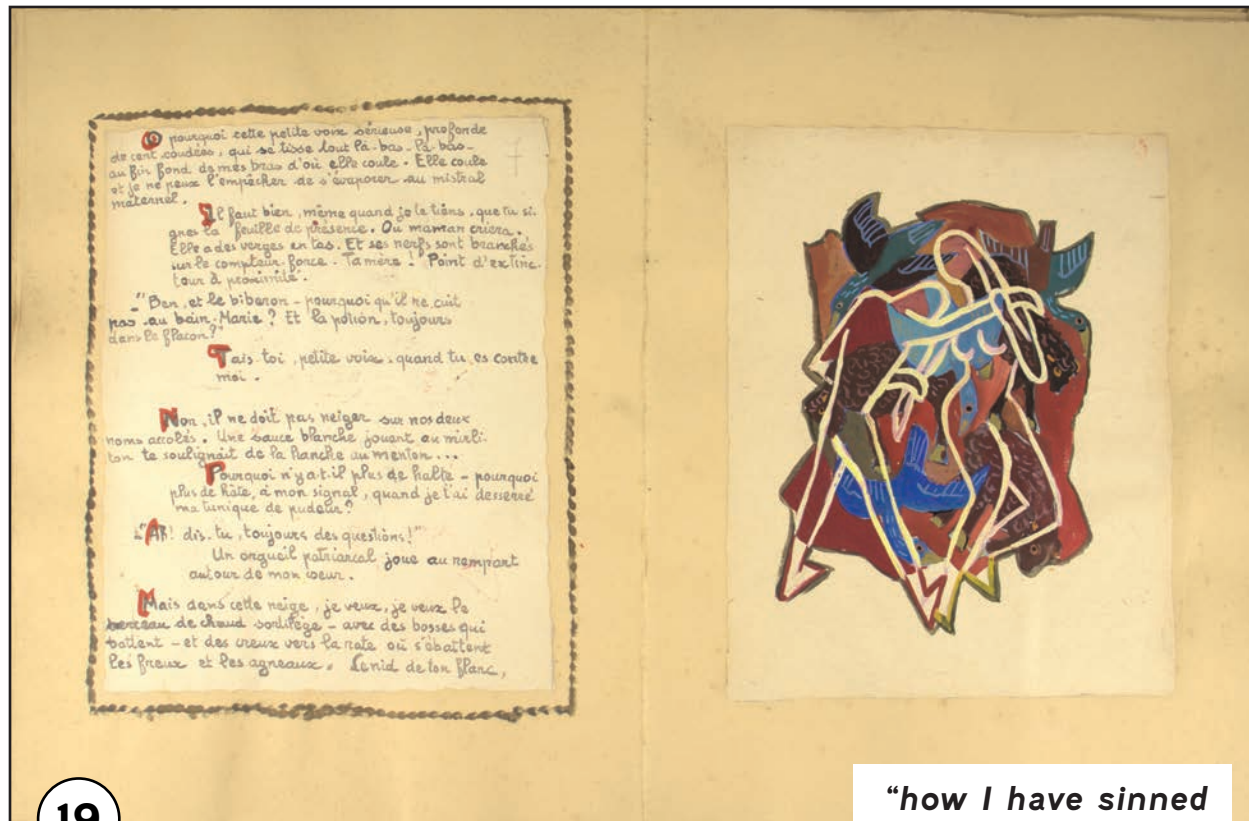 O pourquoi cette petite voix sérieuse, profonde
de cent coudées, qui se tisse tout là-bas-là-bas-
au fin fond de mes bras d'où elle coule. Elle coule
et je ne peux l'empêcher de s'évaporer au mistral
maternel.
Il faut bien, même quand je te tiens, que tu si-
gnes ta feuille de présence. Ou maman criera.
Elle a des verges en tas. Et ses nerfs sont branchés
sur le compteur-force. Ta mère! Point d'extinc-
teur à proximité.
"Ben, et le biberon - pourquoi qu'il ne cuit
pas au bain-Marie? Et la potion, toujours
dans le flacon?"
Tais-toi, petite voix, quand tu es contre
moi.
Non, il ne doit pas neiger sur nos deux
noms accolés. Une sauce blanche jouant au mirli-
ton te soulignait de la hanche au menton...
Pourquoi n'y a-t-il plus de halte - pourquoi
plus de hâte, à mon signal, quand je t'ai desserré
ma tunique de pudeur?
"Ah! dis-tu, toujours des questions!"
Un orgueil patriarcal joue au rempart
autour de mon coeur.
Mais dans cette neige, je veux, je veux le
berceau de chaud sortilège - avec des bosses qui
battent - et des creux vers la rate où s'ébattent
les freux et les agneaux. Le nid de ton flanc,
19
"how I have sinned